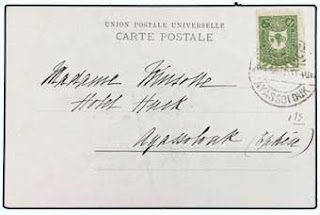 UNION POSTALE UNIVERSELLE
CARTE POSTALE
Madame
Hotel Huck
Ayassolouk (Ephèse)
AYASSOLOUK